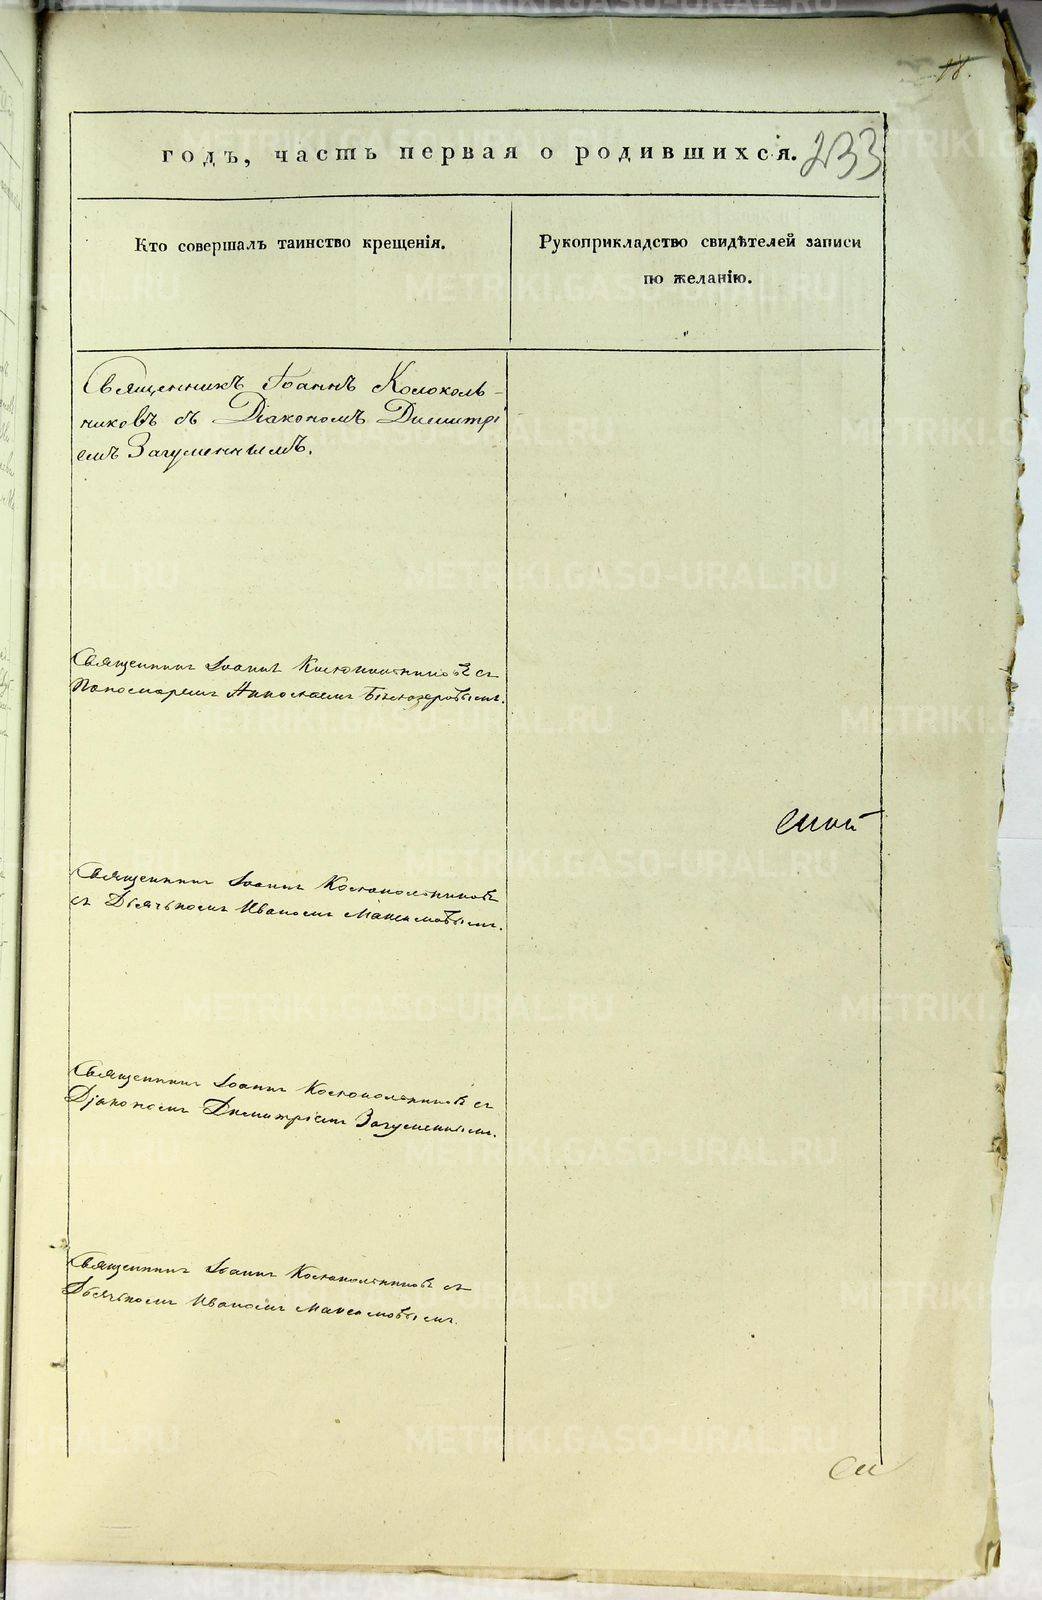 18.
годъ, часть первая о родившихся.
233
Кто совершалъ таинство крещенія.
Рукоприкладство свидѣтелей записи
по желанію.
Священникъ Іоаннъ Колоколь-
никовъ съ Діакономъ Димитрі
емъ Загуменнымъ.
Священникъ Іоаннъ Колокольниковъ съ
Пономаремъ
Священникъ Іоаннъ Колокольниковъ
съ Дьячькомъ Иваномъ Максимовымъ.
Священникъ Іоаннъ Колокольниковъ съ
Діакономъ Димитріемъ Загуменнымъ.
Священникъ Іоаннъ Колокольниковъ съ
Дьячькомъ Иваномъ Максимовымъ.
METRIKI.GASO-URAL.RU